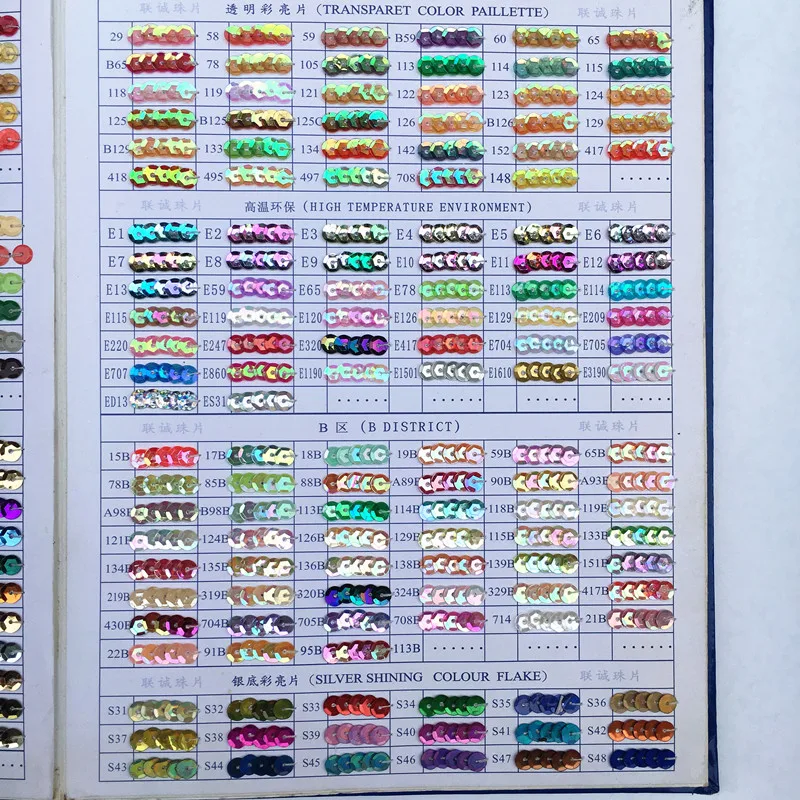 联诚珠片 透明彩亮片 (TRANSPARET COLOR PAILLETTE) 联诚珠片
29 58 59 B59 60 65
B65 78 105 113 114 115
118 119 121 122 123 124
125 B125 125C 126 B126 129
B129 133 134 142 152 417
418 495 497 708 148 ......
联诚珠片 高温环保 (HIGH TEMPERATURE ENVIRONMENT) 联诚珠片
E1 E2 E3 E4 E5 E6
E7 E8 E9 E10 E11 E12
E13 E59 E65 E78 E113 E114
E115 E119 E120 E126 E129 E209
E220 E247 E320 E417 E704 E705
E707 E860 E1190 E1501 E1610 E3190
ED13 ES31 ...... ...... ...... ......
联诚珠片 B 区 (B DISTRICT) 联诚珠片
15B 17B 18B 19B 59B 65B
78B 85B 88B A89B 90B A93B
A98B B98B 113B 114B 118B 119B
121B 124B 126B 129B 115B 133B
134B 135B 136B 138B 139B 151B
219B 319B 320B 324B 329B 417B
430B 704B 705B 708B 714 21B
22B 91B 95B 113B ...... ......
联诚珠片 银底彩亮片 (SILVER SHINING COLOUR FLAKE) 联诚珠片
S31 S32 S33 S34 S35 S36
S37 S38 S39 S40 S41 S42
S43 S44 S45 S46 S47 S48